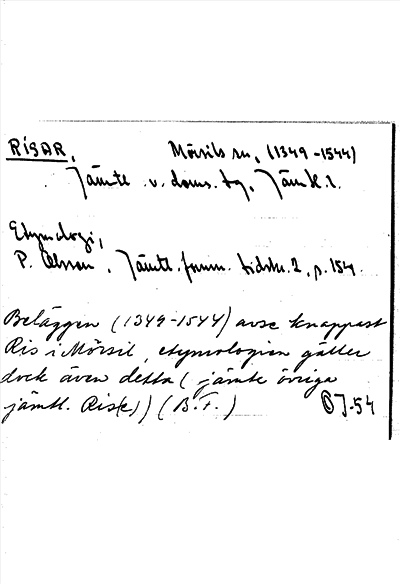 RISAR, Mörsils sn, (1349-1544)
Jämtl. v. doms. tg, Jämtl. l.
Etymologi,
P. Olsson, Jämtl. forn. tidskr. 2, p. 154.
Beläggen (1349-1544) avse knappast
Ris i Mörsil, etymologien gäller
dock även detta (jämte övriga
jämtl. Ris(e)) (B.F.) OJ-54